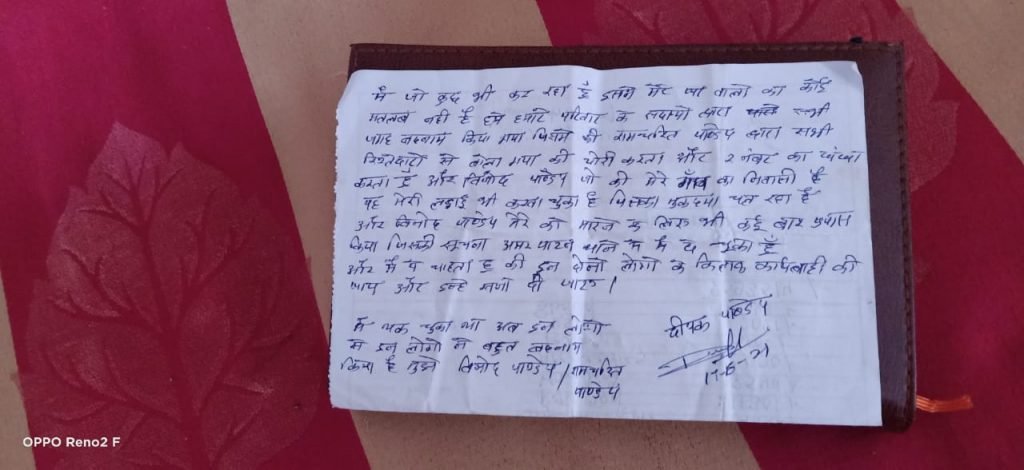 मै जो कुछ भी कर रहा हूँ इसमे मेरे घर वालो का कोई
मतलब नही है हमे हमारे परिवार के सदस्यो द्वारा सभी
जगह बदनाम किया गया जिसमे की रामचरित पाण्डेय द्वारा सभी
रिश्तेदारो से बोला गया की चोरी करता और 2 नंबर का धंधा
करता है और विनोद पाण्डेय जो की मेरे गाँव का निवासी है
यह मेरी लडाई भी करवा चुका है जिसका मुकदमा चल रहा है
और विनोद पाण्डेय मेरे को मारने के लिए भी कई बार प्रयास
किया जिसकी सूचना अमर पाटन थाने मे मै दे चुका हूँ
और मै ये चाहता हूँ की इन दोनो लोगो के खिलाफ कार्यवाही की
जाए और इन्हे सजा दी जाए।
मै थक चुका था अब इन लोगो
से इन लोगो ने बहुत बदनाम
किया है मुझे विनोद पाण्डेय / रामचरित
पाण्डेय
दीपक पाण्डेय
17-6-21
OPPO Reno2 F